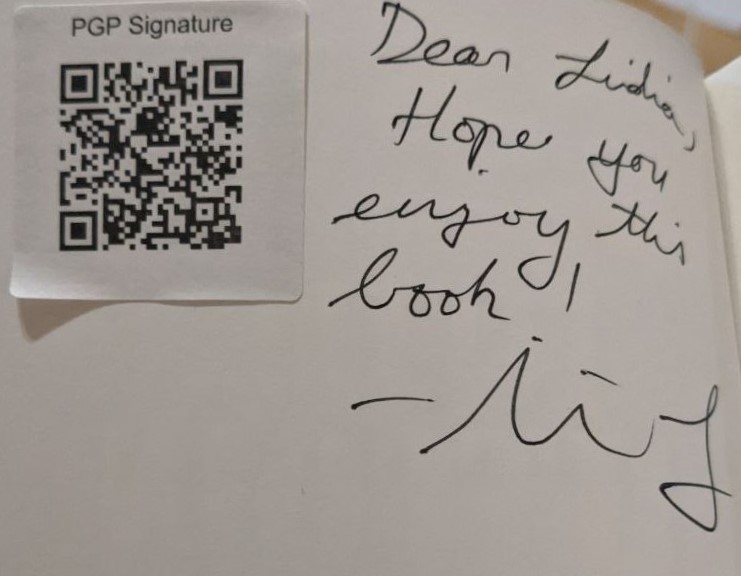 PGP Signature
Dear Lidia,
Hope you
enjoy this
book!